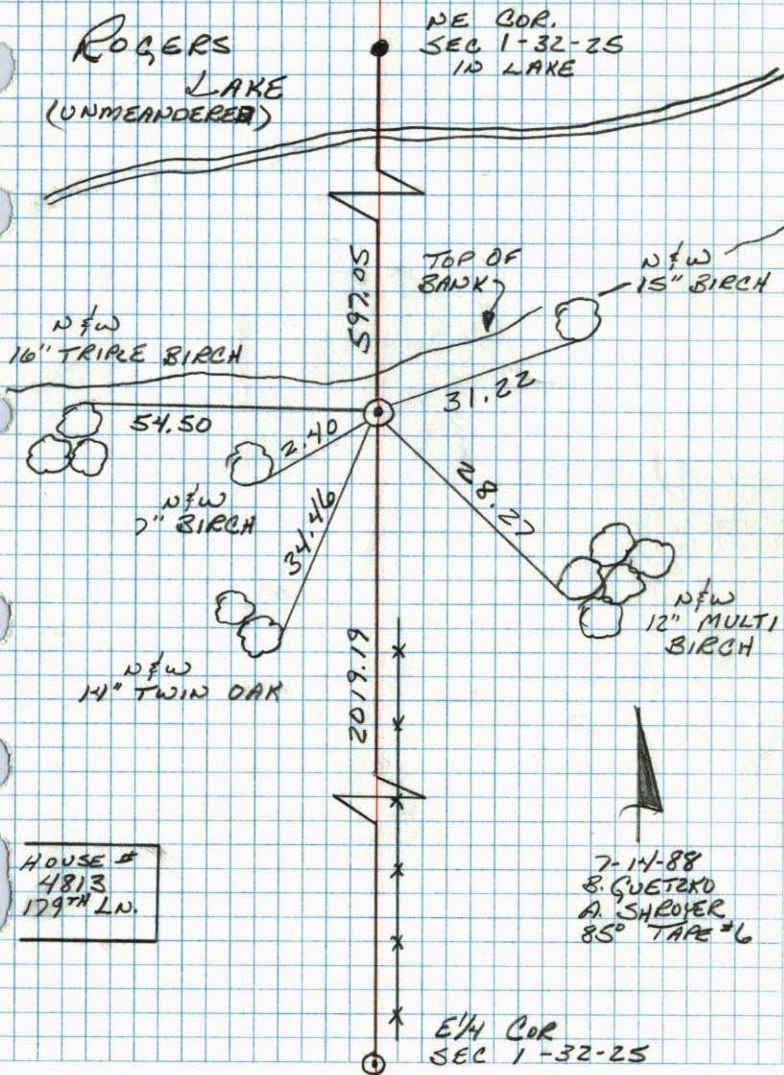 ROGERS
LAKE
(UNMEANDERED)
NE COR.
SEC 1-32-25
IN LAKE
597.05
TOP OF
BANK
N & W
15" BIRCH
N & W
16" TRIPLE BIRCH
54.50
2.40
31.22
N & W
7" BIRCH
34.46
28.27
N & W
12" MULTI
BIRCH
N & W
14" TWIN OAK
2019.19
HOUSE #
4813
179TH LN.
7-14-88
B. GUETZKO
A. SHROYER
85° TAPE #6
E1/4 COR
SEC 1-32-25